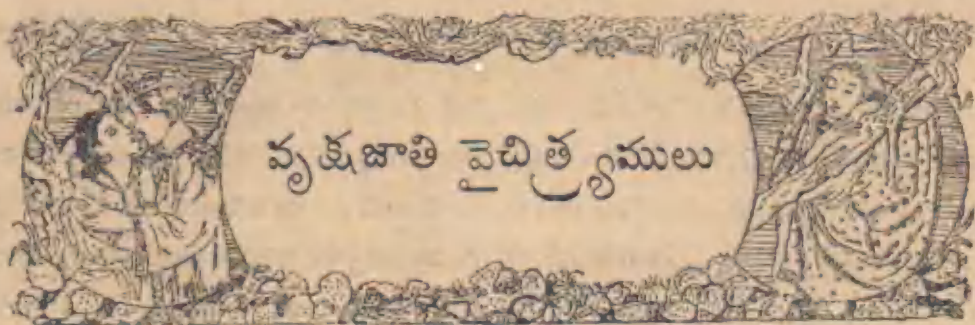 వృక్షజాతి వైచిత్ర్యములు